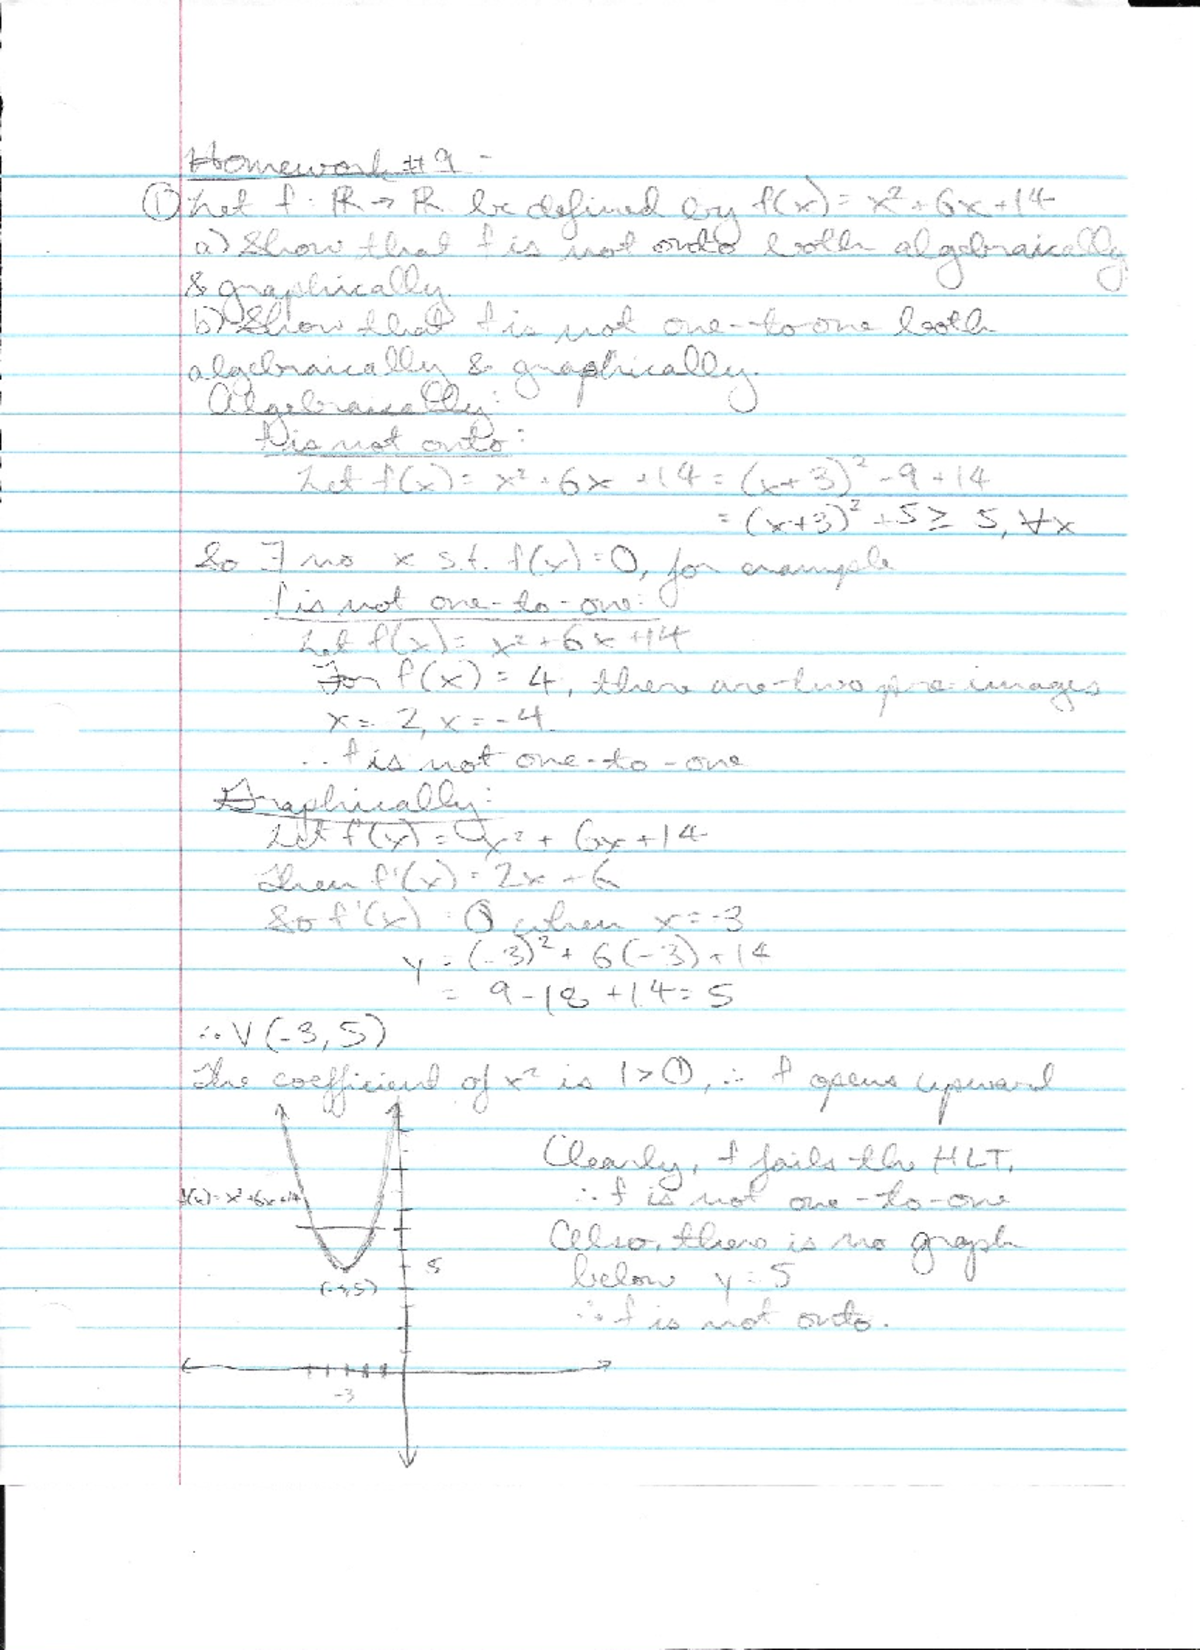 Homework #9
① Let f: ℝ → ℝ be defined by f(x) = x² + 6x + 14
a) Show that f is not onto both algebraically
& graphically.
b) Show that f is not one-to-one both
algebraically & graphically.
Algebraically:
f is not onto:
Let f(x) = x² + 6x + 14 = (x+3)² - 9 + 14
= (x+3)² + 5 ≥ 5, ∀x
So ∃ no x s.t. f(x) = 0, for example
f is not one-to-one:
Let f(x) = x² + 6x + 14
For f(x) = 4, there are two pre-images
x = 2, x = -4
∴ f is not one-to-one
Graphically:
Let f(x) = x² + 6x + 14
Then f'(x) = 2x + 6
So f'(x) = 0 when x = -3
y = (-3)² + 6(-3) + 14
= 9 - 18 + 14 = 5
∴ V(-3, 5)
The coefficient of x² is 1 > 0, ∴ f opens upward
Clearly, f fails the HLT,
f(x) = x² + 6x + 14
∴ f is not one-to-one
Also, there is no graph
below y = 5
5
(-3, 5)
∴ f is not onto.
-3